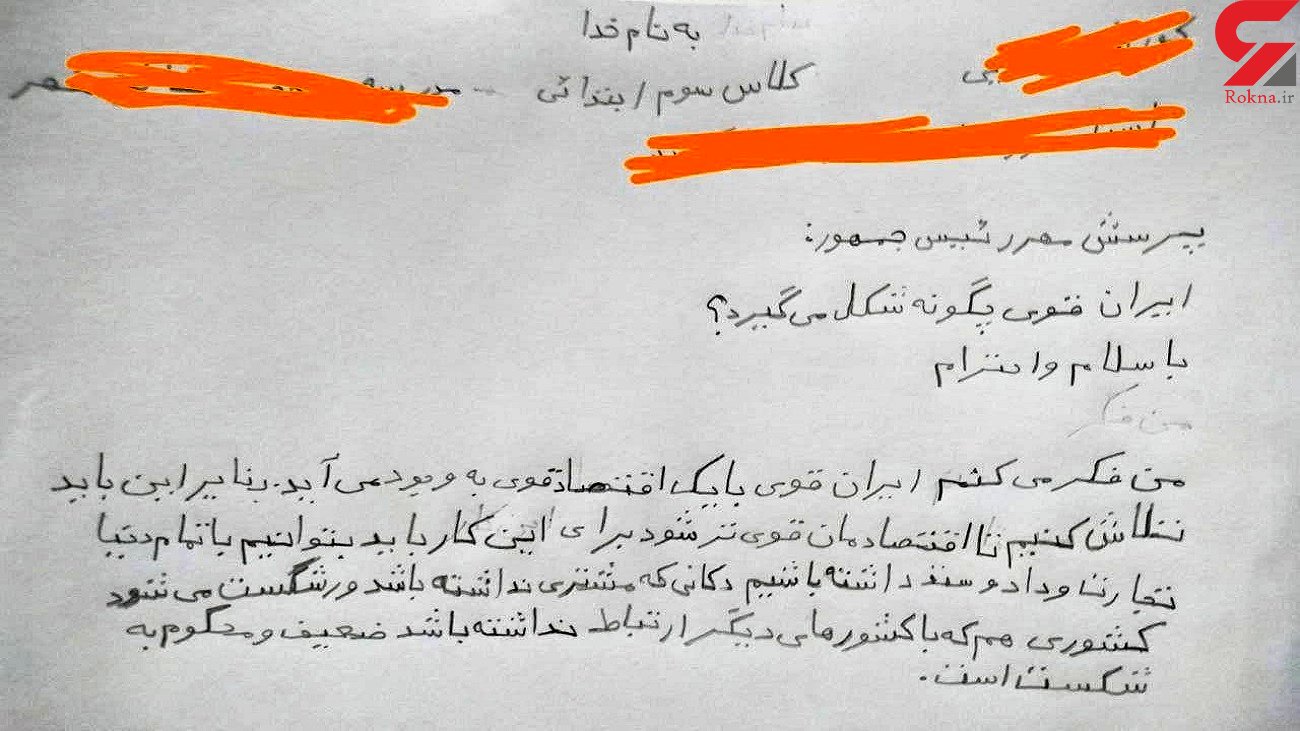 به نام خدا
کلاس سوم ابتدائی - مدرسه
Rokna.ir
پرسش مهر رئیس جمهور:
ایران قوی چگونه شکل می گیرد؟
با سلام و احترام
من فکر
من فکر می کنم ایران قوی با یک اقتصاد قوی به وجود می آید. بنابراین باید
تلاش کنیم تا اقتصادمان قوی تر شود برای این کار باید بتوانیم با تمام دنیا
تجارت و داد و ستد داشته باشیم دکانی که مشتری نداشته باشد ورشکست می شود
کشوری هم که با کشورهای دیگر ارتباط نداشته باشد ضعیف و محکوم به
شکست است.